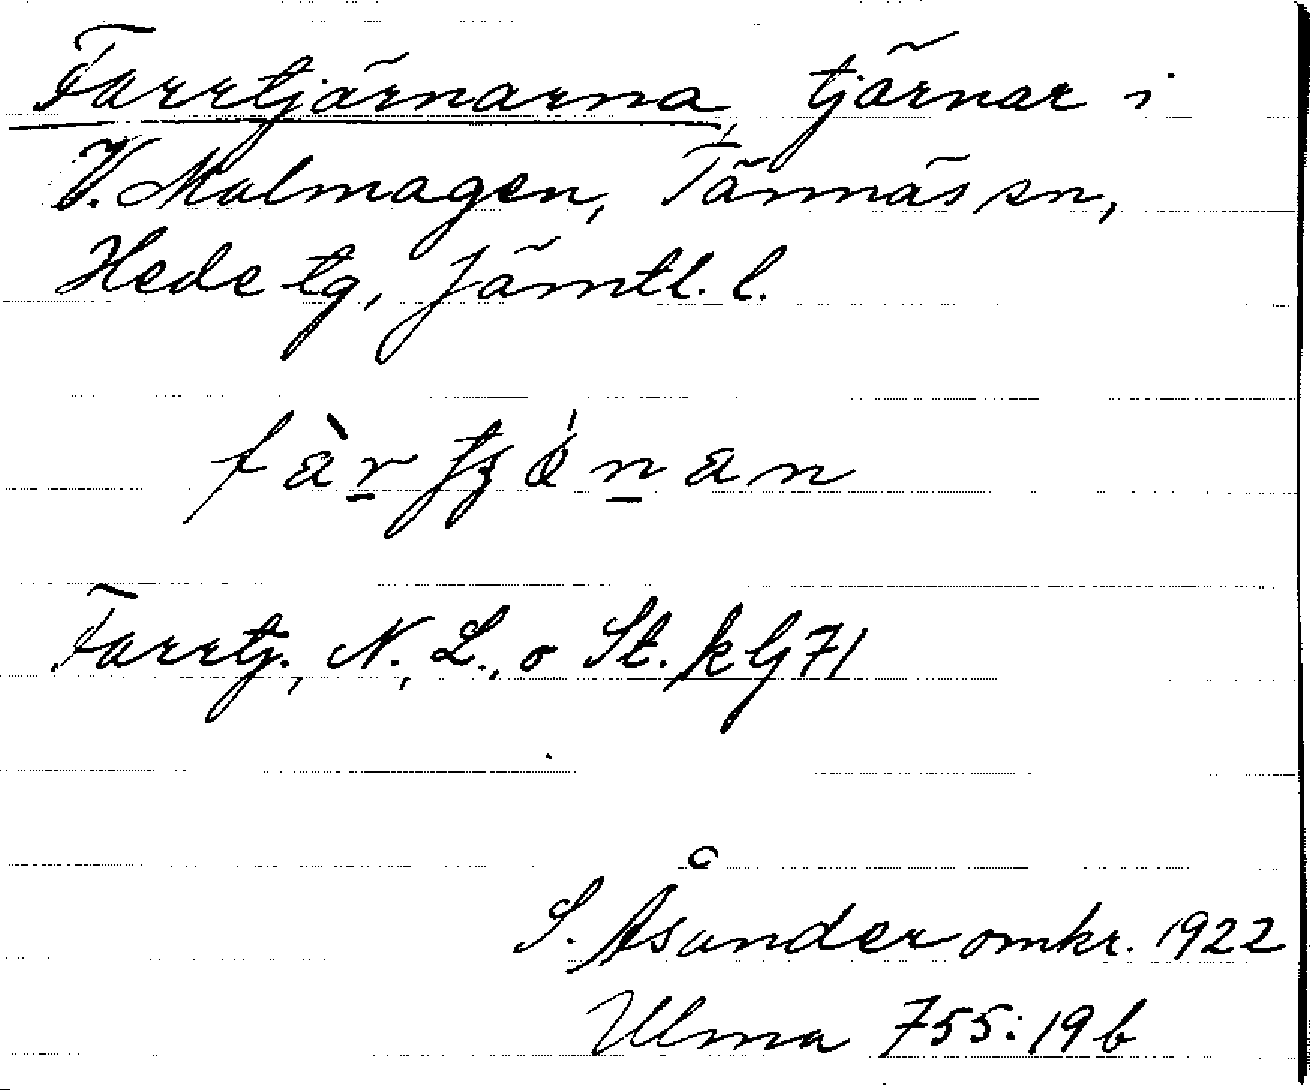 Farrtjärnarna, tjärnar i
V. Malmagen, Tännäs sn,
Hede tg, Jämtl. l.
Farrtj., N., L., o St. kbl 71
S. Åsander omkr. 1922
Ulma 755:19 b